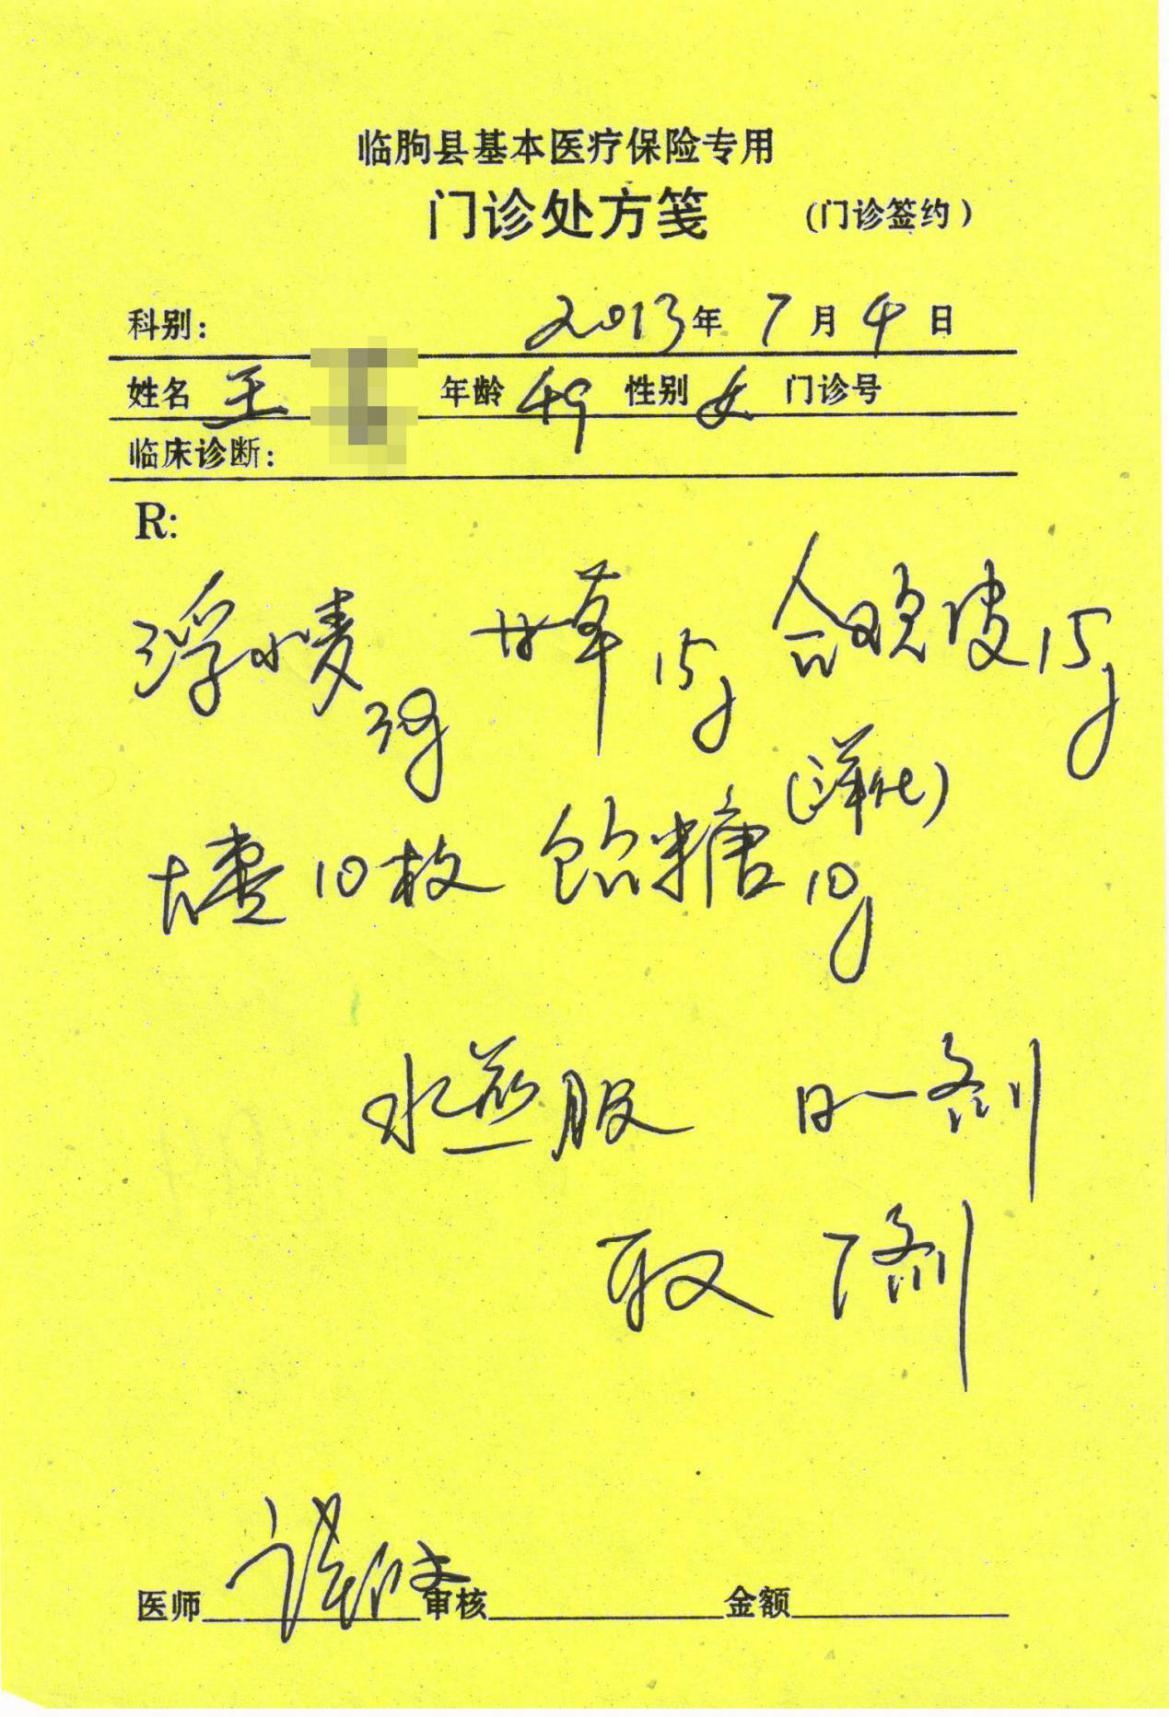 临朐县基本医疗保险专用
门诊处方笺 (门诊签约)
科别: 2013年 7月 4日
姓名 王 年龄 49 性别 女 门诊号
临床诊断:
R:
浮小麦 30g 甘草 15g 合欢皮 15g
(烊化)
大枣 10枚 饴糖 10g
水煎服 日一剂
取 7剂
医师 审核 金额